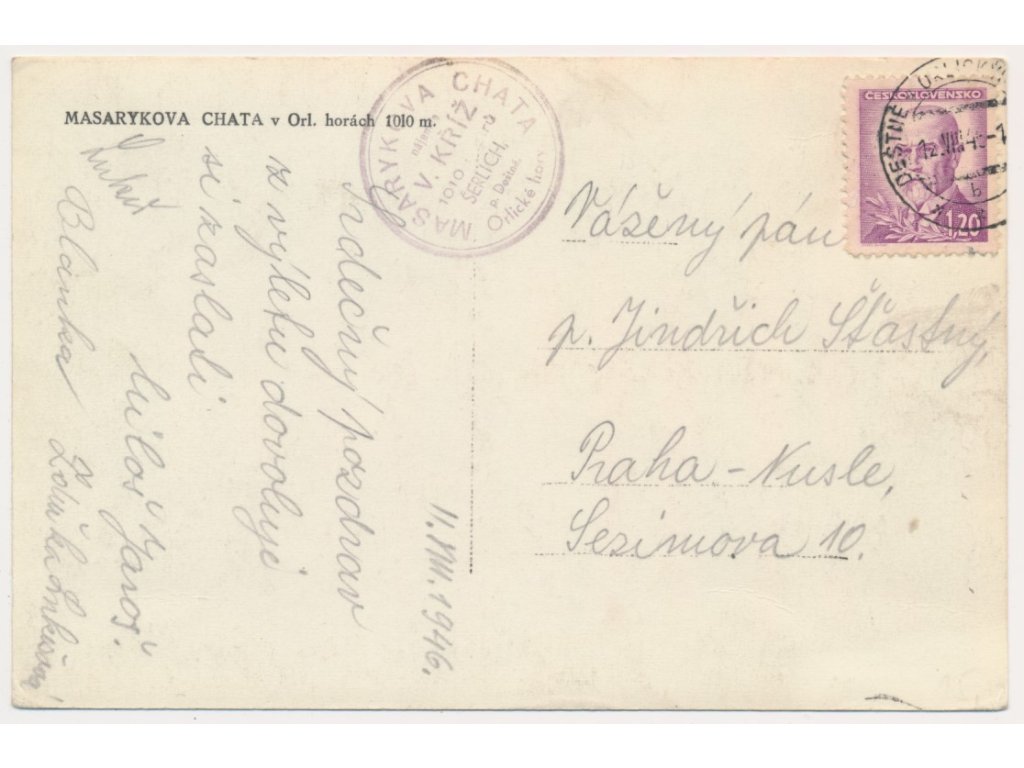 MASARYKOVA CHATA v Orl. horách 1010 m.
MASARYKOVA CHATA
nájem.
V. KŘÍŽ
1010
ŠERLICH,
p. Deštné
Orlické hory
ČESKOSLOVENSKO
1.20
DEŠTNÉ
12.VIII.46-7
b
Srdečný pozdrav
z výletu dovoluje
si zaslati
Miloš Jaroš.
Blanka
11.VIII.1946.
Vážený pán
p. Jindřich Šťastný,
Praha-Nusle,
Sezimova 10.